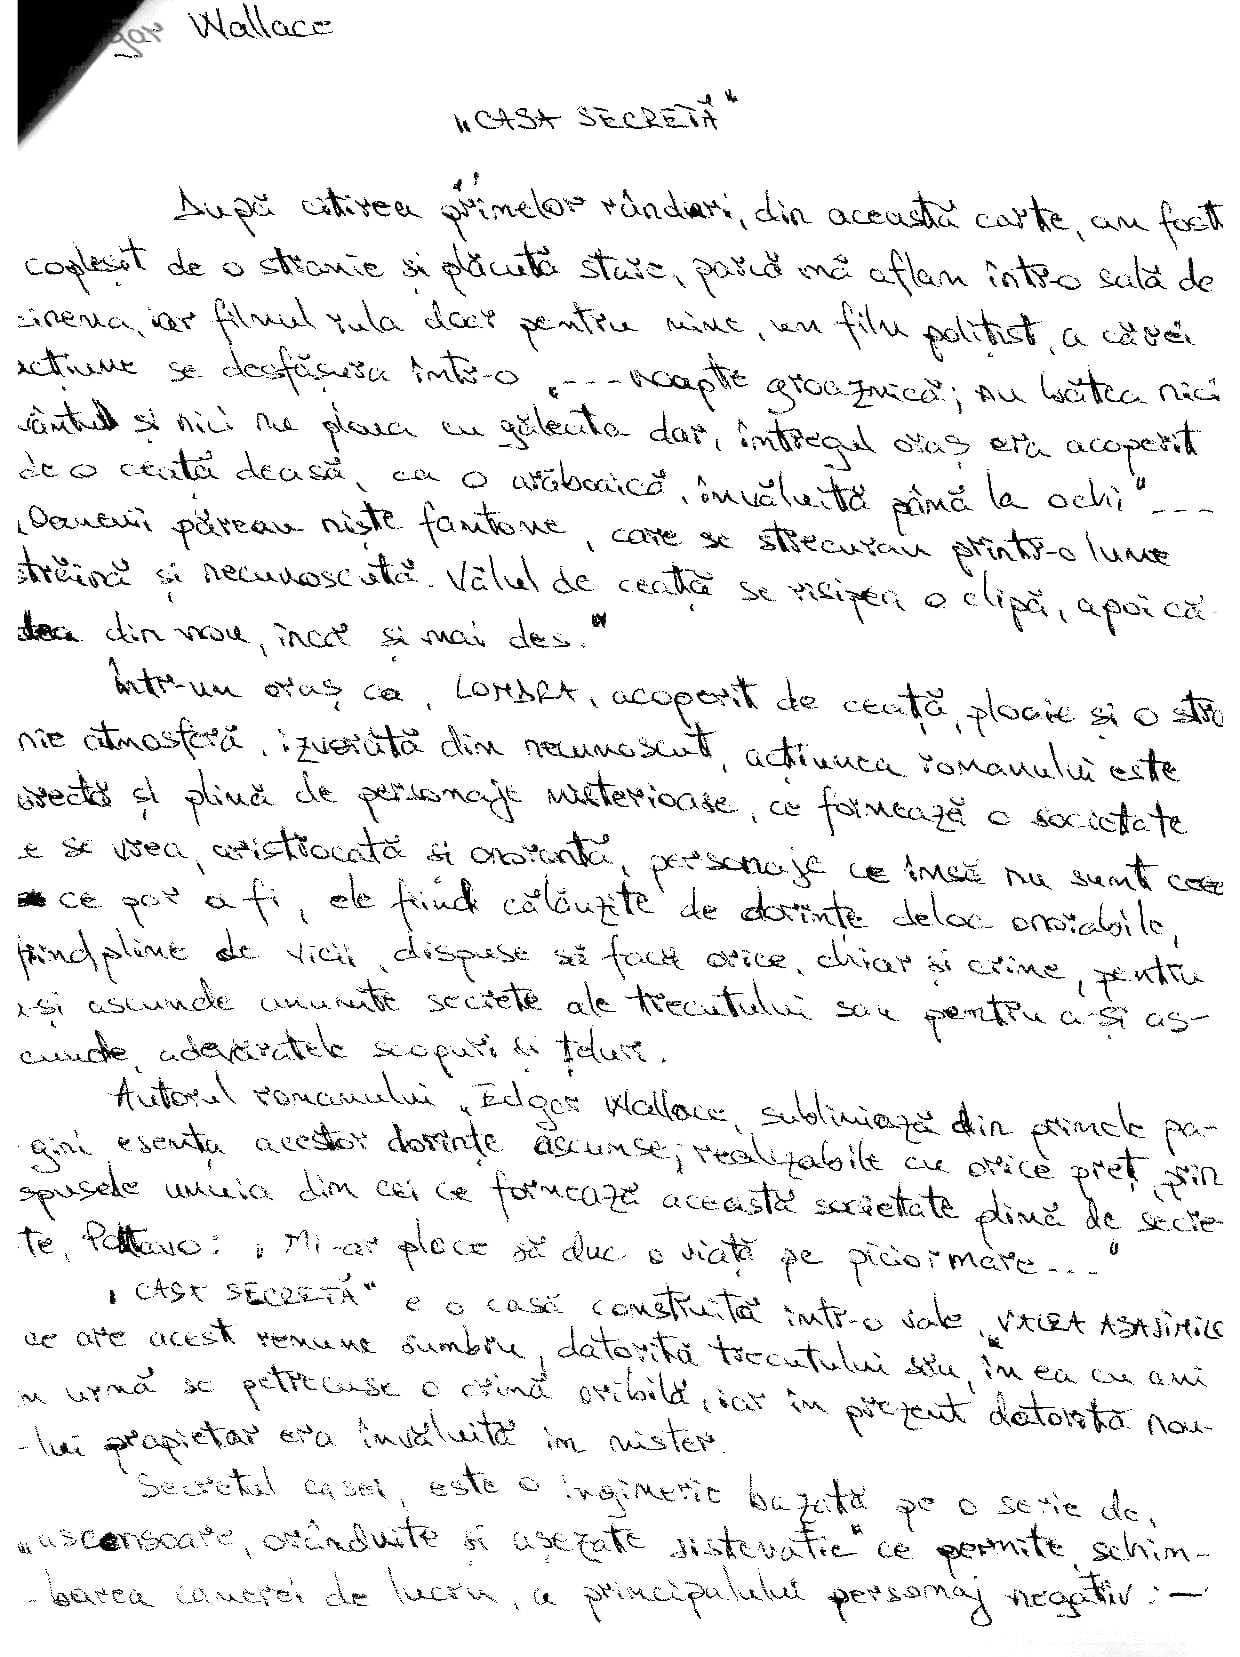 gar Wallace
„CASA SECRETĂ"
După citirea primelor rânduri, din această carte, am fost
copleșit de o stranie și plăcută stare, parcă mă aflam într-o sală de
cinema, iar filmul rula doar pentru mine, un film polițist, a cărei
acțiune se desfășura într-o „---noapte groaznică; nu bătea nici
vântul și nici nu ploua cu găleata dar, întregul oraș era acoperit
de o ceață deasă, ca o arăboaică, învăluită până la ochi"---
„Oamenii păreau niște fantome, care se strecurau printr-o lume
străină și necunoscută. Vălul de ceață se risipea o clipă, apoi că-
dea din nou, încă și mai des."
Într-un oraș ca, LONDRA, acoperit de ceață, ploaie și o stra
nie atmosferă, izvorâtă din necunoscut, acțiunea romanului este
directă și plină de personaje misterioase, ce formează o societate
e se vrea, aristrocată și onorantă, personaje ce însă nu sunt ceea
ce par a fi, ele fiind călăuzite de dorințe deloc onorabile,
fiind pline de vicii, dispuse să facă orice, chiar și crime, pentru
a-și ascunde anumite secrete ale trecutului sau pentru a-și as-
cunde, adevăratele scopuri și țeluri.
Autorul romanului, Edgar Wallace, subliniază din primele pa-
gini, esența acestor dorințe ascunse, realizabile cu orice preț, prin
spusele unuia din cei ce formează această societate plină de secre-
te, Poltavo: „Mi-ar place să duc o viață pe picior mare..."
„CASA SECRETĂ" e o casă construită într-o vale, „VALEA ASASINILOR
ce are acest renume sumbru, datorită trecutului său, în ea cu ani
în urmă se petrecuse o crimă oribilă, iar în prezent datorită nou-
-lui propietar era învăluită în mister.
Secretul casei, este o inginerie bazată pe o serie de,
„ascensoare, orânduite și așezate sistematic" ce permite, schim-
-barea camerei de lucru, a principalului personaj negativ: —